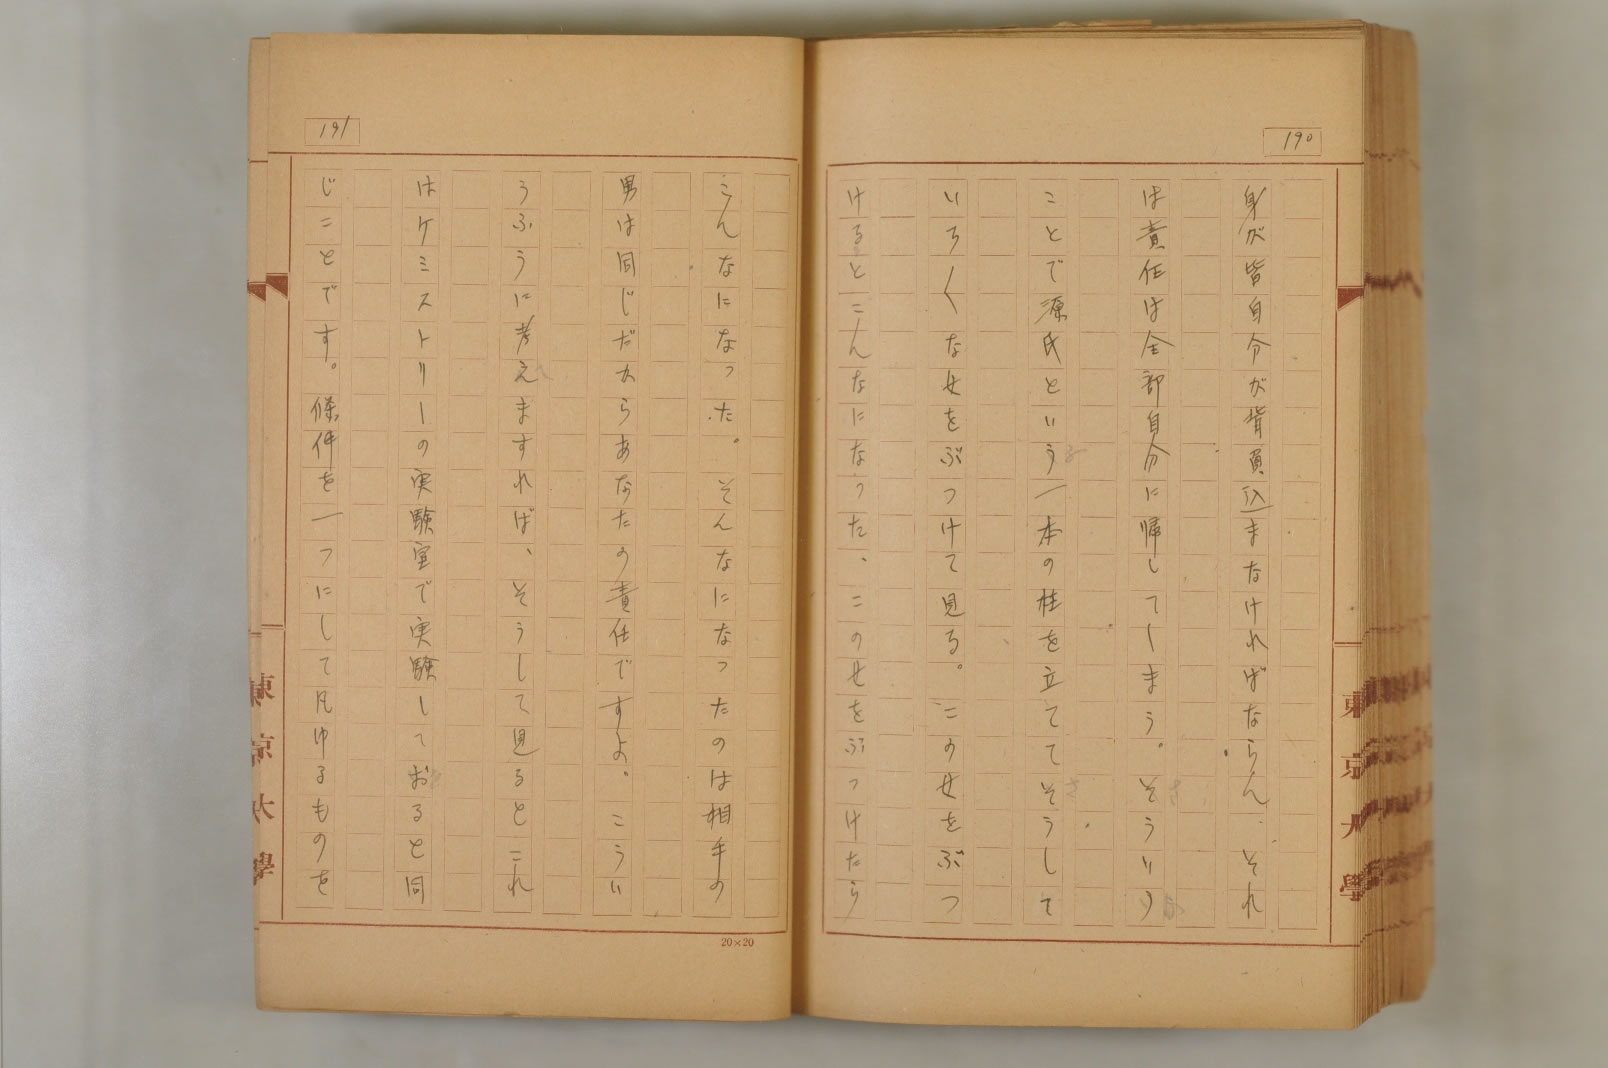 190
身が皆自分が背負込まなければならん、それ
は責任は全部自分に帰してしまう。そういう
ことで源氏という一本の柱を立ててそうして
いろ〱な女をぶつけて見る。この女をぶつ
けるとこんなになった、この女をぶつけたら
東京大學
191
こんなになった。そんなになったのは相手の
男は同じだからあなたの責任ですよ。こうい
うふうに考えますれば、そうして見るとこれ
はケミストリーの実験室で実験しておると同
じことです。條件を一つにして凡ゆるものを
東京大學
20×20